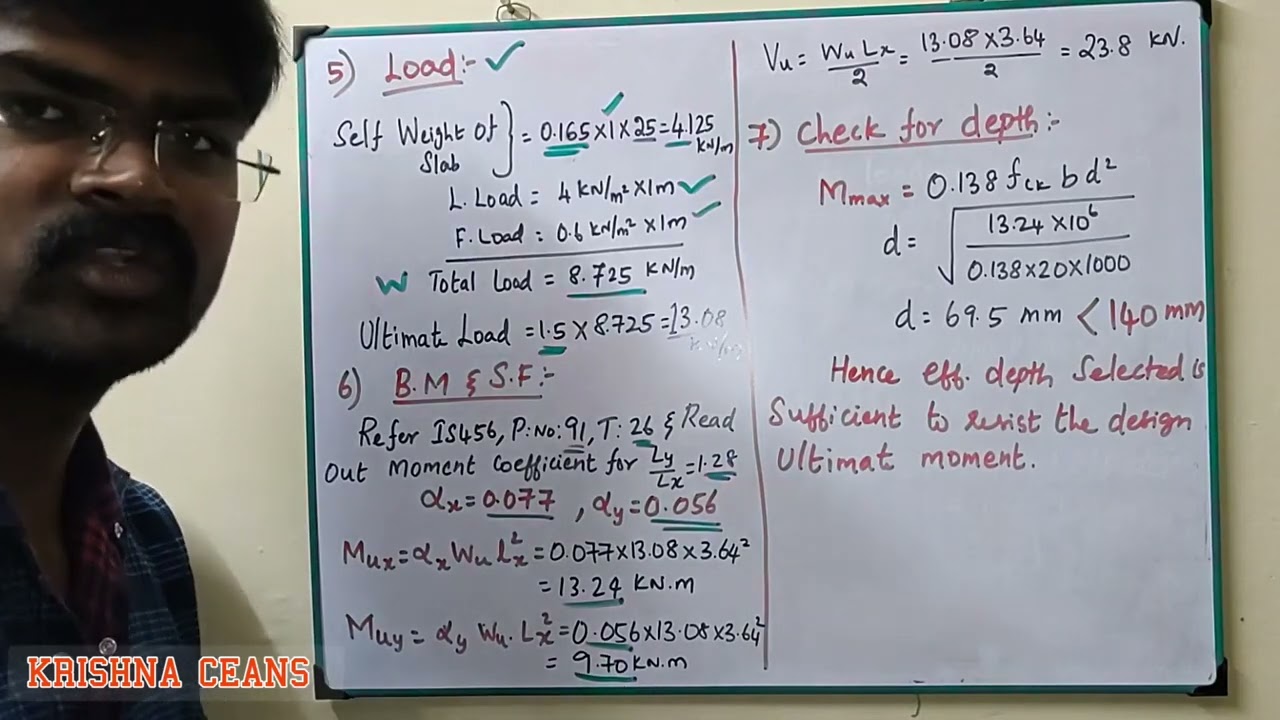 5) Load:- ✓
Self Weight of Slab } = 0.165 × 1 × 25 = 4.125 KN/m
L. Load = 4 KN/m² × 1m ✓
F. Load = 0.6 KN/m² × 1m ✓
W Total Load = 8.725 KN/m
Ultimate Load = 1.5 × 8.725 = 13.08 KN/m
6) B.M & S.F:-
Refer IS456, P.No:91, T: 26 & Read
Out Moment Coefficient for Ly/Lx = 1.28
αx = 0.077, αy = 0.056
Mux = αx Wu lx² = 0.077 × 13.08 × 3.64²
= 13.24 KN.m
Muy = αy Wu. Lx² = 0.056 × 13.08 × 3.64²
= 9.70 KN.m
Vu = Wu Lx / 2 = 13.08 × 3.64 / 2 = 23.8 KN.
7) Check for depth:-
Mmax = 0.138 fck b d²
d = √(13.24 × 10⁶ / 0.138 × 20 × 1000)
d = 69.5 mm < 140 mm
Hence eff. depth Selected is
Sufficient to resist the design
Ultimat moment.
KRISHNA CEANS